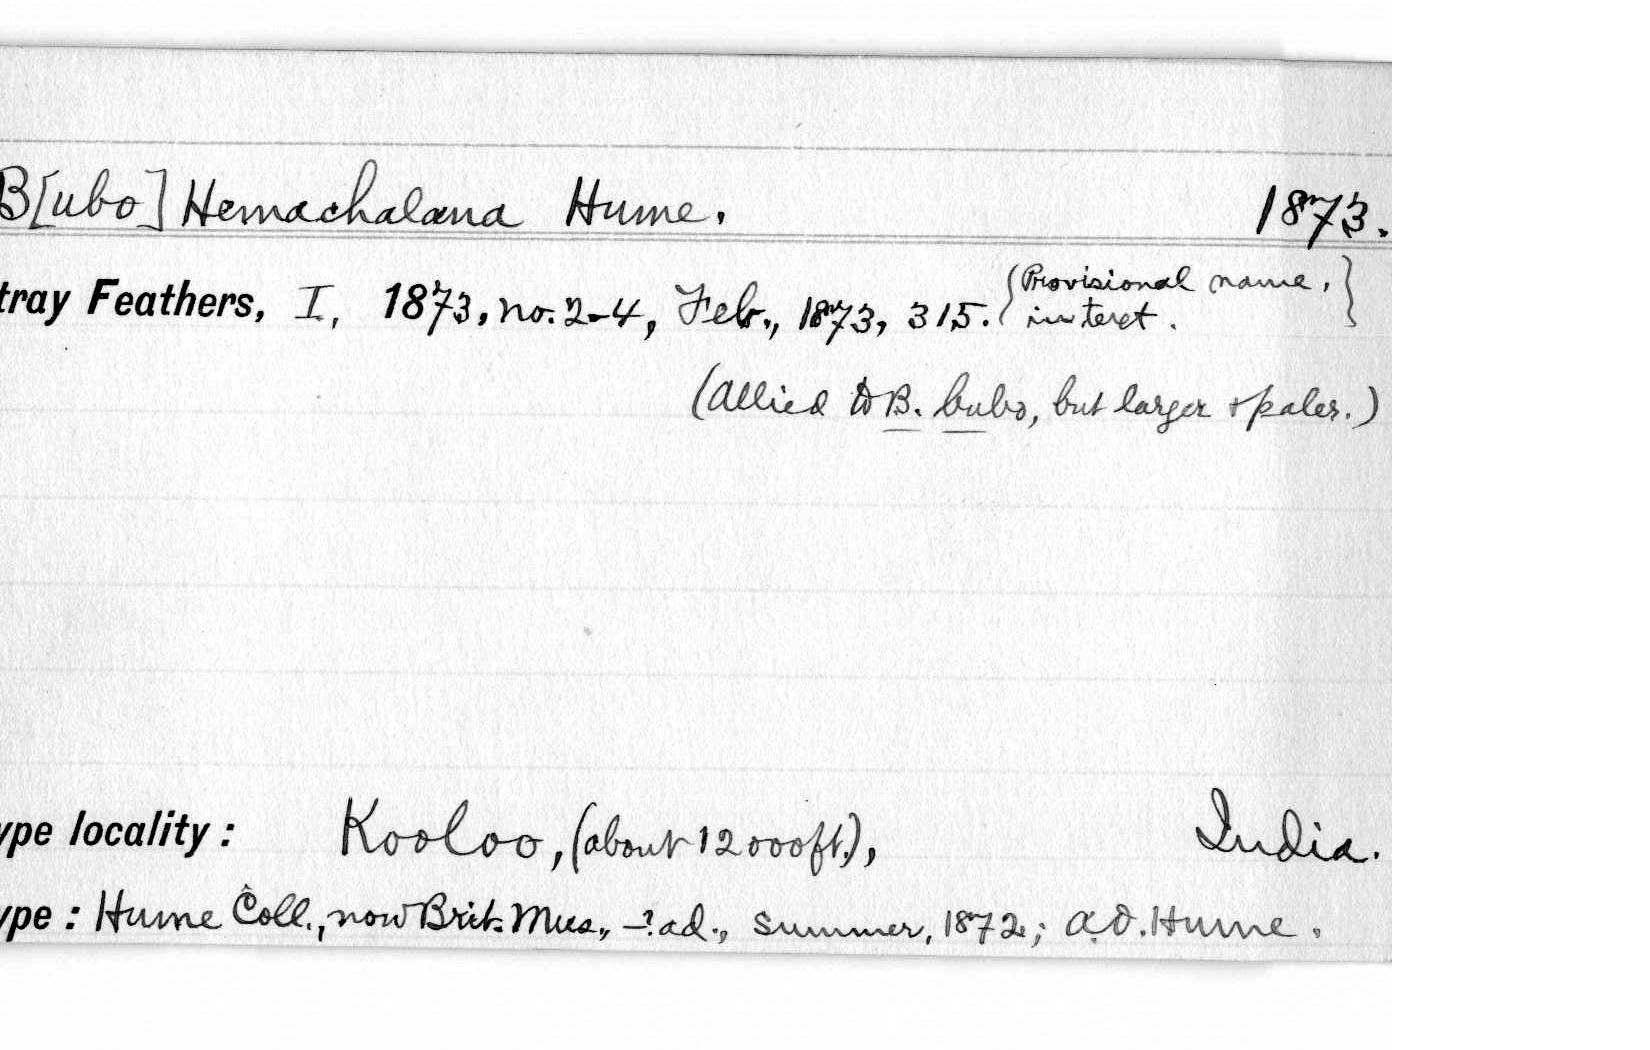 B[ubo] Hemachalana Hume. 1873.
tray Feathers, I, 1873, no. 2-4, Feb., 1873, 315. (Provisional name,
in text.)
(Allied to B. bubo, but larger + paler.)
ype locality: Kooloo, (about 12000ft.), India.
ype: Hume Coll., now Brit. Mus., —? ad., summer, 1872; A.O. Hume.